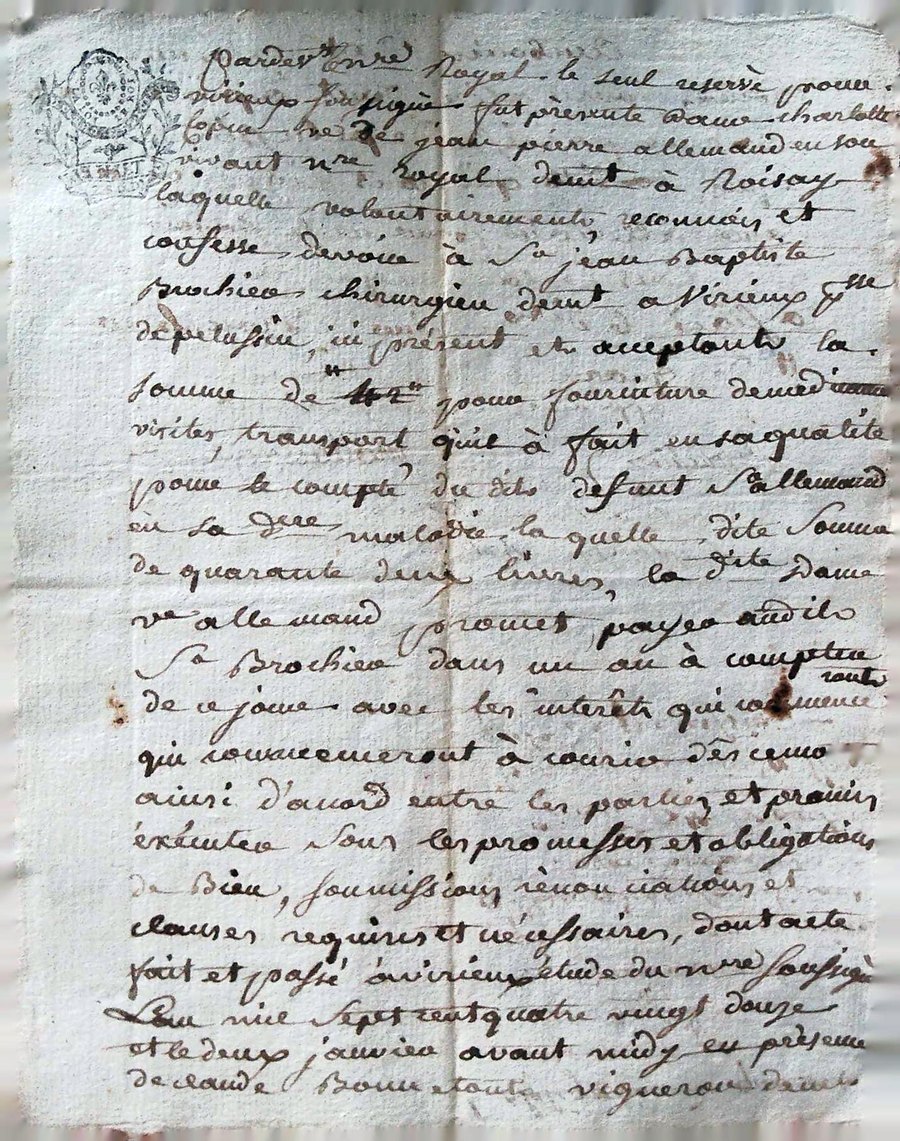 Pardevt Nre Royal le seul reservé pour
virieux soussigné fut presente Dame charlotte
ve de jean pierre allemand en son
vivant nre royal demt à Roisay
laquelle volontairement reconnois et
confesse devoir à Sr jean Baptiste
Brochier chirurgien demt a Virieux psse
de pelussin, ici présent et acceptant la
somme de 42# pour fourniture de medicamens
visites, transport qu'il à fait en sa qualité
pour le compte du dits defunt Sr allemand
en sa dere maladie la quelle dite Somme
de quarante deux livres, la dite Dame
ve allemand promet payer audit
Sr Brochier dans un an à compter
de ce jour avec les interêts qui commence ront
qui commenceront à courir dês ce mo
ainsi d'acord entre les parties et promis
éxécuter sous les promesses et obligations
de Bien, soumissions rènonciations et
clauses requises et nécessaires, dont acte
fait et passé à virieux étude du nre soussigné
L'an mil Sept cent quatre vingt douze
et le deux janvier avant midy en présence
de claude vigneron demt